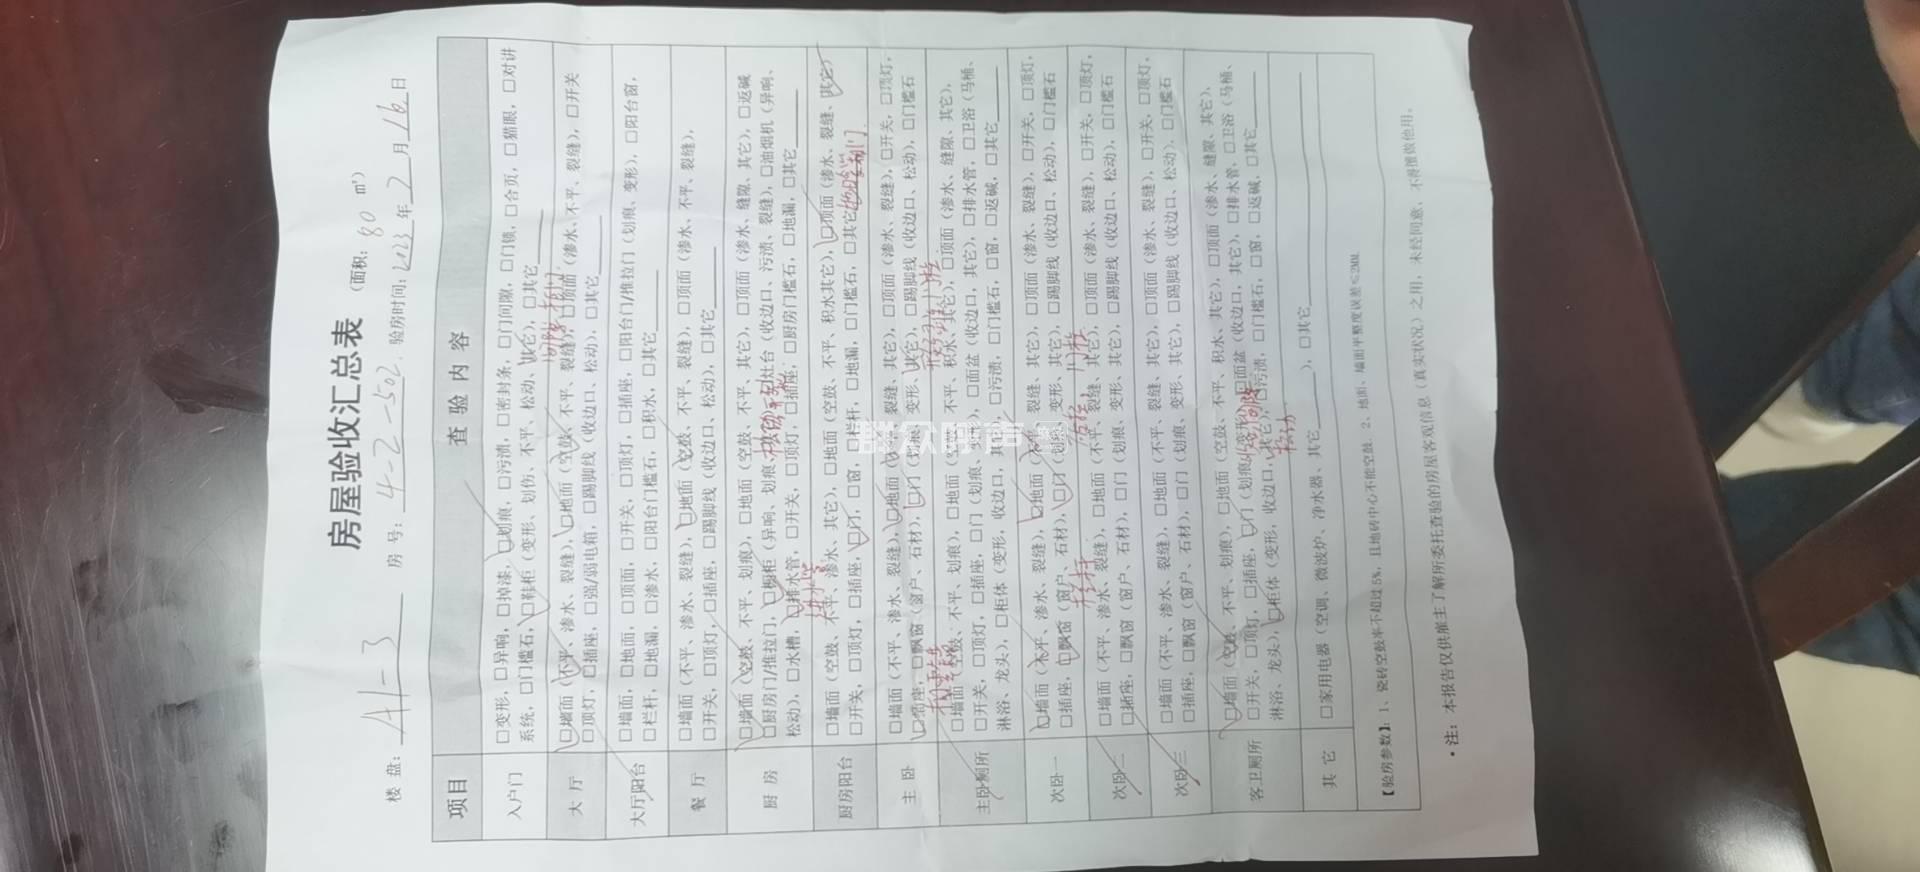 房屋验收汇总表 (面积: 80 m²)
楼 盘: A1-3 房 号: 4-2-502 验房时间: 2023年2月16日
项目 查 验 内 容
入户门 □变形, □异响, □掉漆, □划痕, □污渍, □密封条, □门间隙, □门锁, □合页, □猫眼, □对讲
系统, □门槛石, □鞋柜 (变形、划伤、不平、松动、其它), □其它
大 厅 □墙面 (不平、渗水、裂缝), □地面 (空鼓、不平、裂缝), □顶面 (渗水、不平、裂缝), □开关
□顶灯, □插座, □强/弱电箱, □踢脚线 (收边口、松动), □其它
大厅阳台 □墙面, □地面, □顶面, □开关, □顶灯, □插座, □阳台门/推拉门 (划痕、变形), □阳台窗,
□栏杆, □地漏, □渗水, □阳台门槛石, □积水, □其它
餐 厅 □墙面 (不平、渗水、裂缝), □地面 (空鼓、不平、裂缝), □顶面 (渗水、不平、裂缝),
□开关, □顶灯, □插座, □踢脚线 (收边口、松动), □其它
厨 房 □墙面 (空鼓、不平、划痕), □地面 (空鼓、不平、其它), □顶面 (渗水、缝隙、其它), □返碱
□厨房门/推拉门, □橱柜 (异响、划痕、松动), □灶台 (收边口、污渍、裂缝), □油烟机 (异响、
松动), □水槽, □排水管, □开关, □顶灯, □插座, □厨房门槛石, □地漏, □其它
排水管
厨房阳台 □墙面 (空鼓、不平、渗水、其它), □地面 (空鼓、不平、积水其它), □顶面 (渗水、裂缝、其它)
□开关, □顶灯, □插座, □门, □窗, □栏杆, □地漏, □门槛石, □其它
主 卧 □墙面 (不平、渗水、裂缝), □地面 (不平、裂缝、其它), □顶面 (渗水、裂缝), □开关, □顶灯,
□插座, □飘窗 (窗户、石材), □门 (划痕、变形、其它), □踢脚线 (收边口、松动), □门槛石
主卧厕所 □墙面 (空鼓、不平、划痕), □地面 (空鼓、不平、积水、其它), □顶面 (渗水、缝隙、其它),
□开关, □顶灯, □插座, □门 (划痕、变形), □面盆 (收边口、其它), □排水管, □卫浴 (马桶、
淋浴、龙头), □柜体 (变形、收边口、其它), □污渍, □门槛石, □窗, □返碱, □其它
次卧一 □墙面 (不平、渗水、裂缝), □地面 (不平、裂缝、其它), □顶面 (渗水、裂缝), □开关, □顶灯,
□插座, □飘窗 (窗户、石材), □门 (划痕、变形、其它), □踢脚线 (收边口、松动), □门槛石
次卧二 □墙面 (不平、渗水、裂缝), □地面 (不平、裂缝、其它), □顶面 (渗水、裂缝), □开关, □顶灯,
□插座, □飘窗 (窗户、石材), □门 (划痕、变形、其它), □踢脚线 (收边口、松动), □门槛石
次卧三 □墙面 (不平、渗水、裂缝), □地面 (不平、裂缝、其它), □顶面 (渗水、裂缝), □开关, □顶灯,
□插座, □飘窗 (窗户、石材), □门 (划痕、变形、其它), □踢脚线 (收边口、松动), □门槛石
客卫厕所 □墙面 (空鼓、不平、划痕), □地面 (空鼓、不平、积水、其它), □顶面 (渗水、缝隙、其它),
□开关, □顶灯, □插座, □门 (划痕、变形), □面盆 (收边口、其它), □排水管, □卫浴 (马桶、
淋浴、龙头), □柜体 (变形、收边口、其它), □污渍, □门槛石, □窗, □返碱, □其它
松动
其 它 □家用电器 (空调、微波炉、净水器、其它), □其它
【验房参数】: 1、瓷砖空鼓率不超过5%, 且地砖中心不能空鼓. 2、地面、墙面平整度误差≤2MM.
• 注: 本报告仅供雇主了解所委托查验的房屋客观信息 (真实状况) 之用, 未经同意, 不得擅做他用.
群众呼声